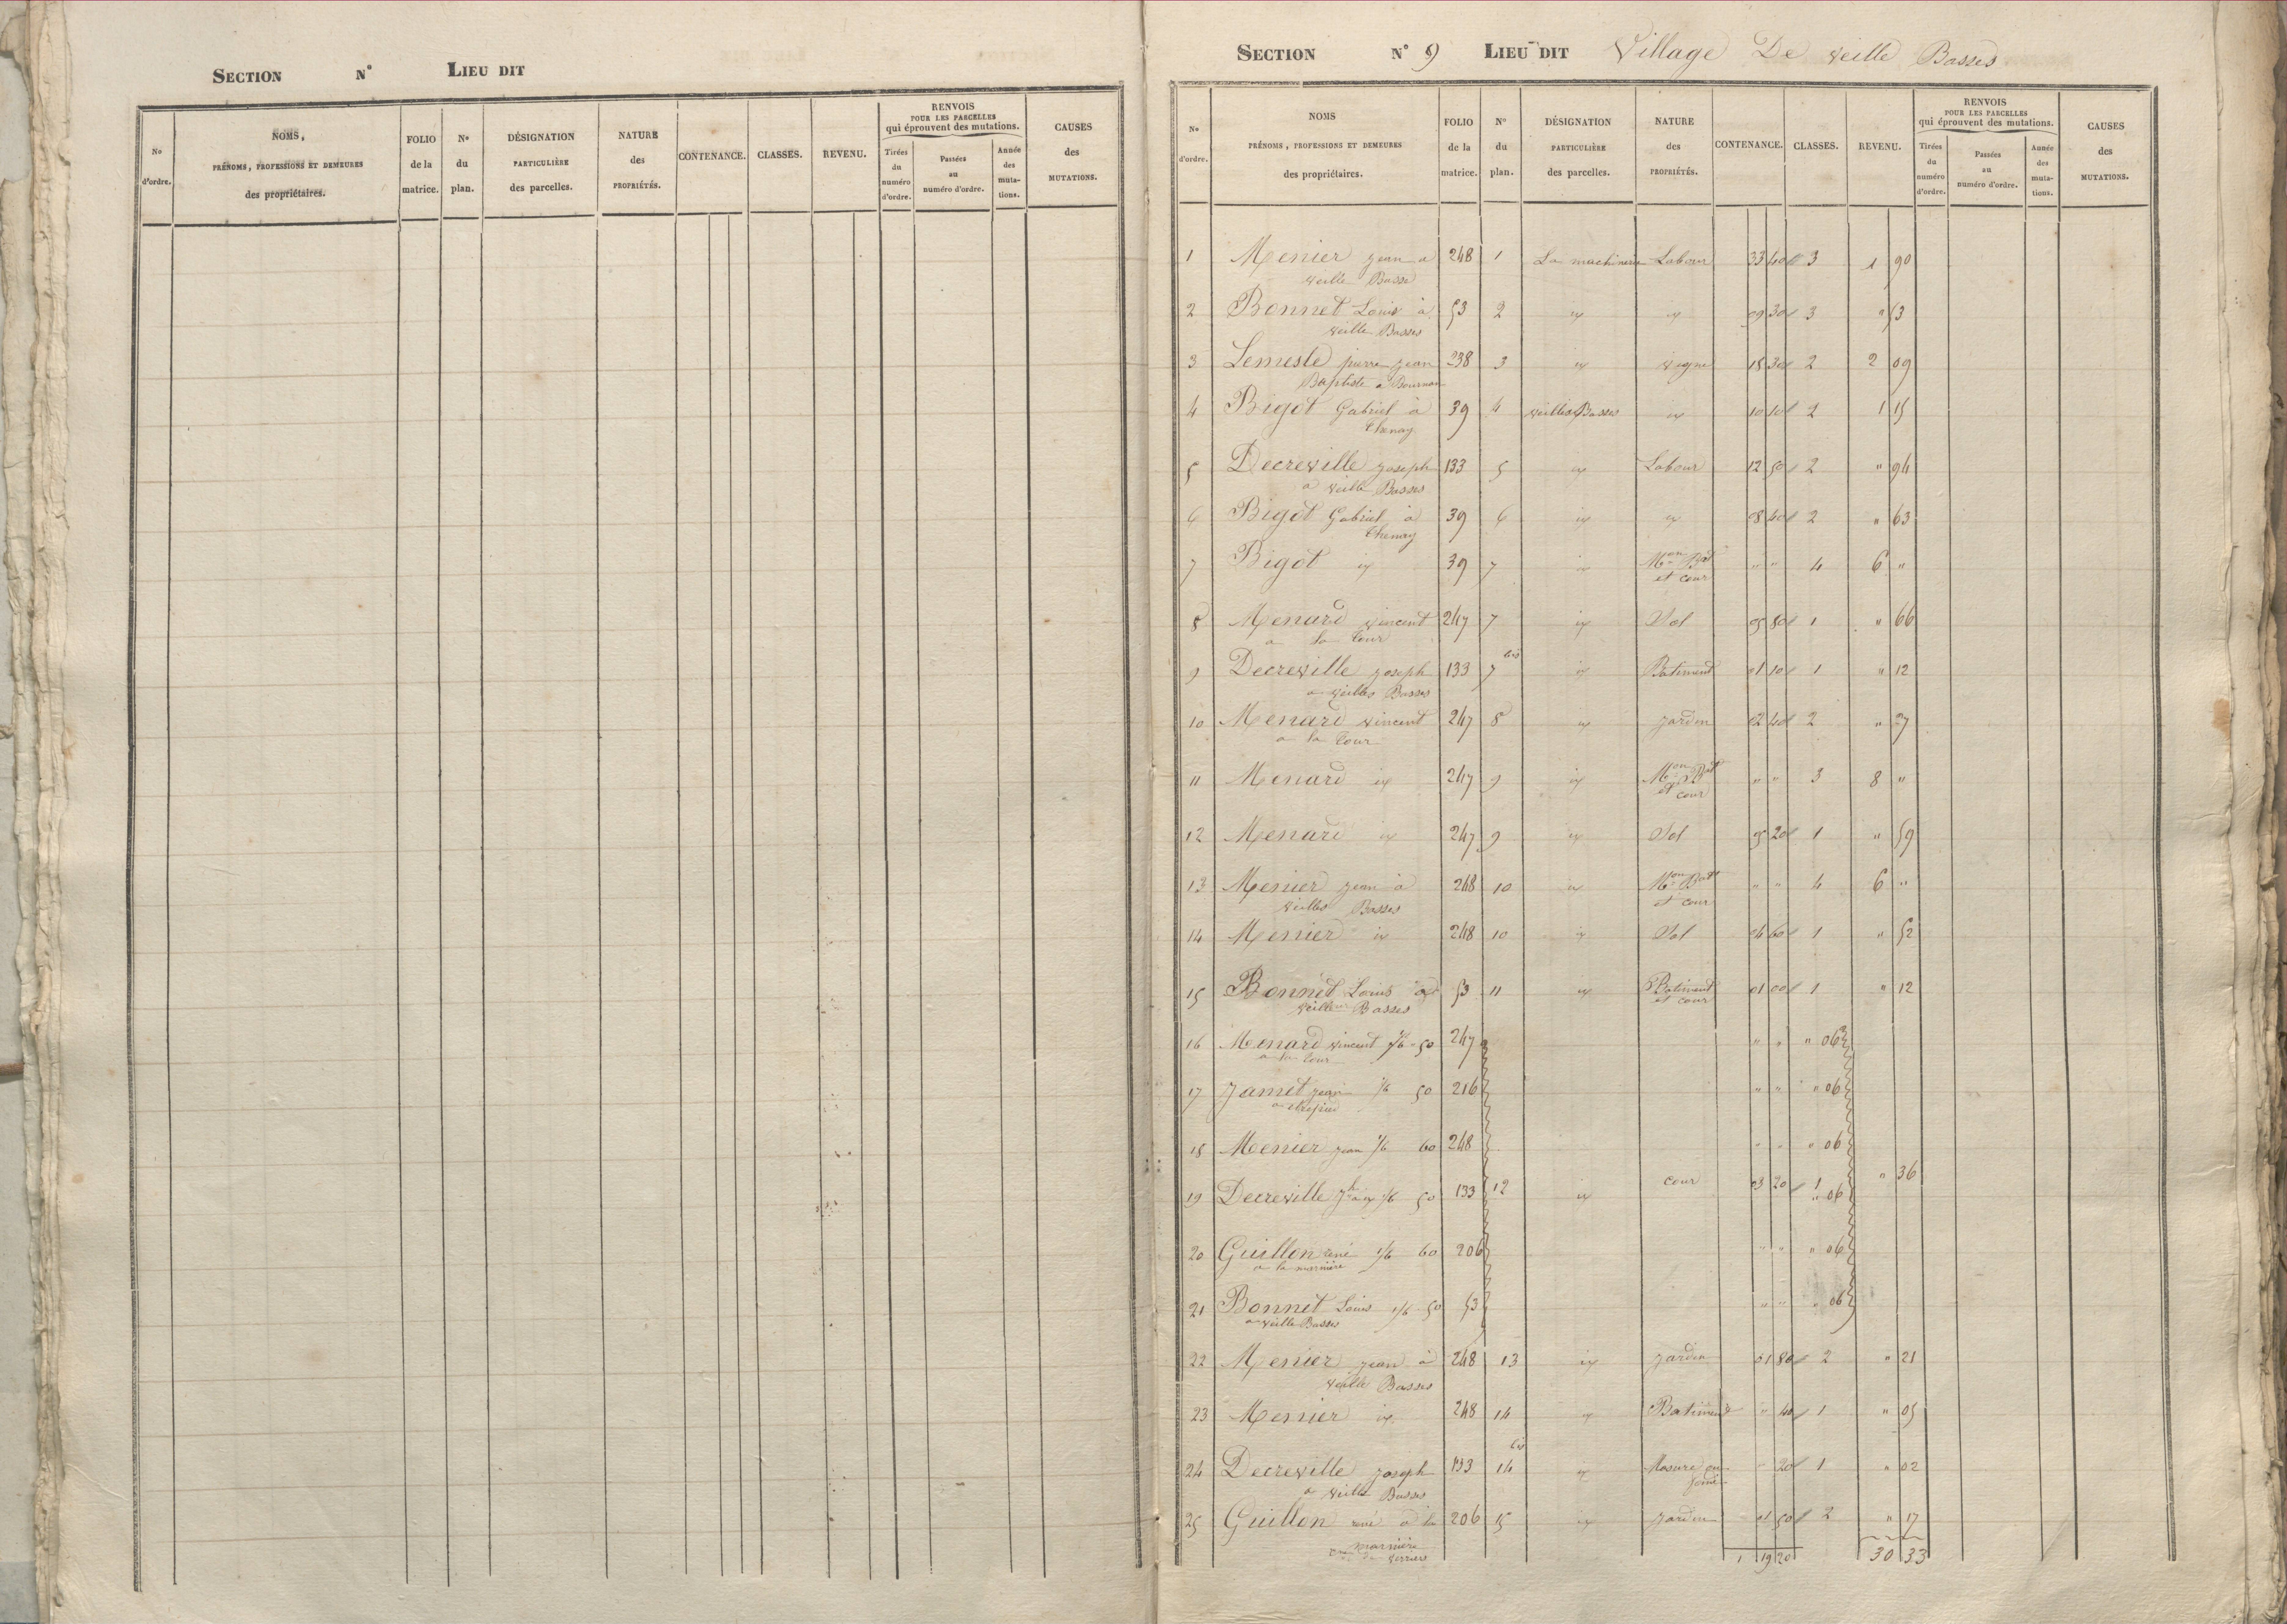 SECTION N° LIEU DIT
N° d'ordre.
NOMS, PRÉNOMS, PROFESSIONS ET DEMEURES des propriétaires.
FOLIO de la matrice.
N° du plan.
DÉSIGNATION PARTICULIÈRE des parcelles.
NATURE des PROPRIÉTÉS.
CONTENANCE.
CLASSES.
REVENU.
RENVOIS POUR LES PARCELLES qui éprouvent des mutations.
Tirées du numéro d'ordre.
Passées au numéro d'ordre.
Année des mutations.
CAUSES des MUTATIONS.
SECTION N° 9 LIEU DIT Village De veille Basses
N° d'ordre.
NOMS PRÉNOMS, PROFESSIONS ET DEMEURES des propriétaires.
FOLIO de la matrice.
N° du plan.
DÉSIGNATION PARTICULIÈRE des parcelles.
NATURE des PROPRIÉTÉS.
CONTENANCE.
CLASSES.
REVENU.
RENVOIS POUR LES PARCELLES qui éprouvent des mutations.
Tirées du numéro d'ordre.
Passées au numéro d'ordre.
Année des mutations.
CAUSES des MUTATIONS.
1 Menier jean a 248 1 La machinerie Labour 33 40 3 1 90
veille Basse
2 Bonnet Louis à 53 2 id id 09 30 3 " 53
veille Basses
3 Lemesle pierre jean 238 3 id vigne 15 30 2 2 09
Baptiste a Bournan
4 Bigot Gabriel à 39 4 veilles Basses id 10 10 2 1 15
Thenay
5 Decreville joseph 133 5 id Labour 12 50 2 " 94
a veille Basses
6 Bigot Gabriel à 39 6 id id 08 40 2 " 63
Thenay
7 Bigot id 39 7 id Mon Bat " " 4 6 "
et cour
8 Menard vincent 247 7 id Sol 05 80 1 " 66
a la Cour
9 Decreville joseph 133 7 bis id Batiment 01 10 1 " 12
a veilles Basses
10 Menard vincent 247 8 id jardin 02 40 2 " 27
a la Cour
11 Menard id 247 9 id Mon Bat " " 3 8 "
et cour
12 Menard id 247 9 id Sol 05 20 1 " 59
13 Menier jean à 248 10 id Mon Bat " " 4 6 "
veilles Basses et cour
14 Menier id 248 10 id Sol 04 60 1 " 52
15 Bonnet Louis à 53 11 id Batiment 01 00 1 " 12
veille Basses et cour
16 Menard vincent 1/6 50 247 " " " 06
a la Cour
17 Jamet jean 1/6 50 216 " " " 06
18 Menier jean 1/6 60 248 " " " 06
19 Decreville Jh a id 1/6 50 133 12 id cour 03 20 1 " 36
" 06
20 Guillon rené 1/6 60 206 " " " 06
a la marnière
21 Bonnet Louis 1/6 50 53 " " " 06
a veille Basses
22 Menier jean à 248 13 id jardin 01 80 2 " 21
veille Basses
23 Menier id 248 14 id Batiment " 40 1 " 05
24 Decreville joseph 133 14 bis id Masure " 20 1 " 02
a veille Basses
25 Guillon rené à la 206 15 id jardin 01 50 2 " 17
marnière
1 19 20 30 33